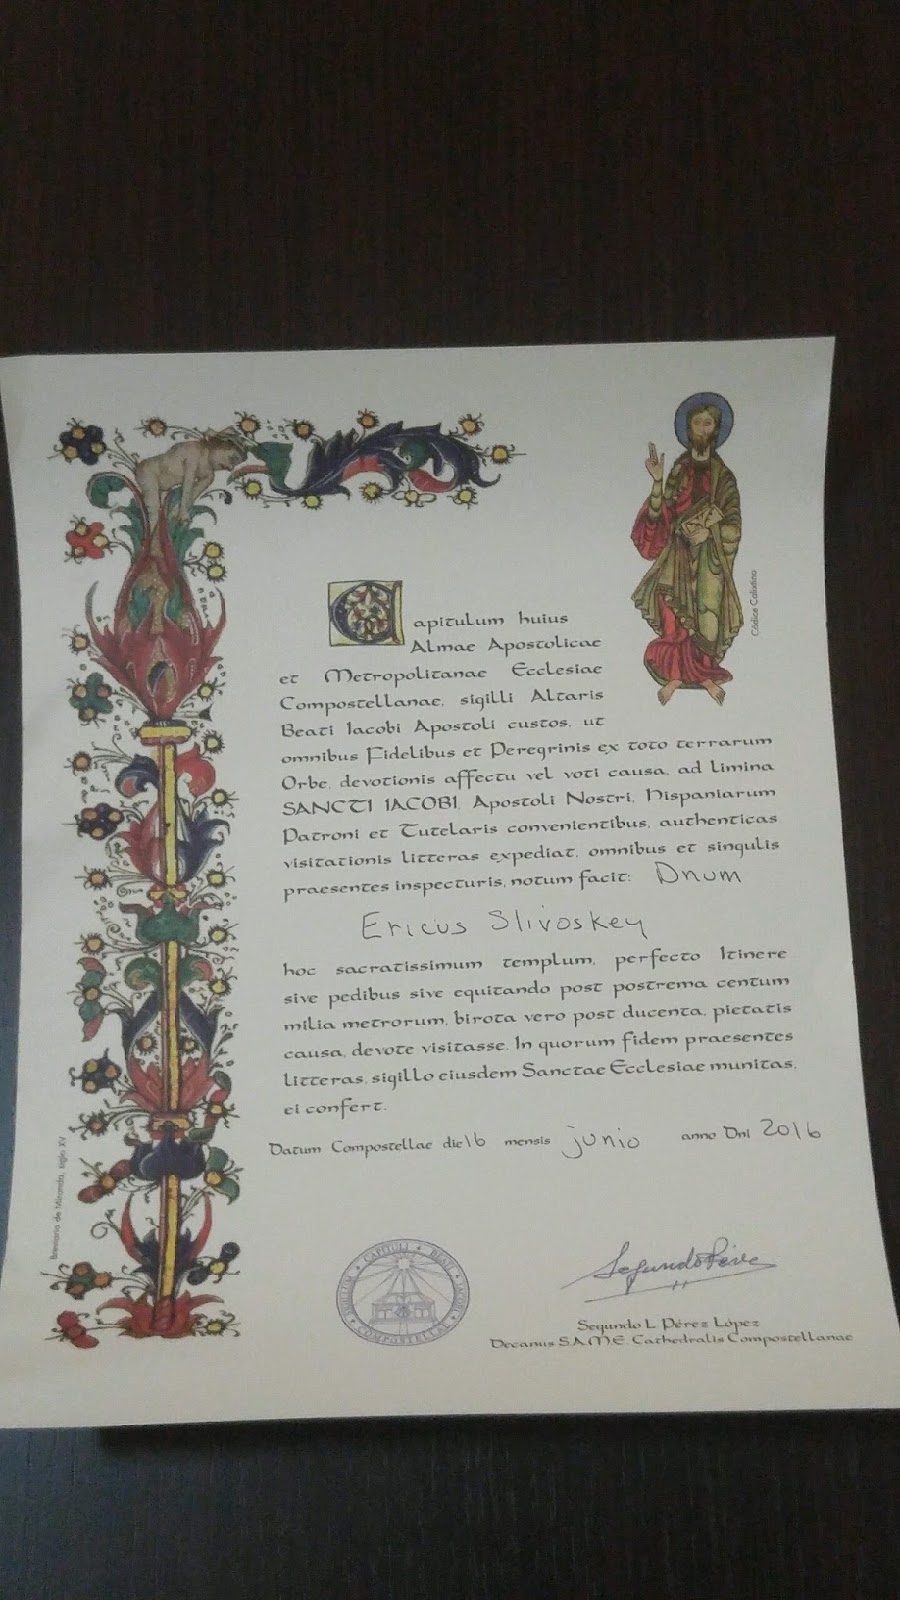 Códice Calixtino
Capitulum huius
Almae Apostolicae
et Metropolitanae Ecclesiae
Compostellanae, sigilli Altaris
Beati Iacobi Apostoli custos, ut
omnibus Fidelibus et Peregrinis ex toto terrarum
Orbe, devotionis affectu vel voti causa, ad limina
SANCTI IACOBI, Apostoli Nostri, Hispaniarum
Patroni et Tutelaris convenientibus, authenticas
visitationis litteras expediat, omnibus et singulis
praesentes inspecturis, notum facit: Dnum
Ericus Slivoskey
hoc sacratissimum templum, perfecto Itinere
sive pedibus sive equitando post postrema centum
milia metrorum, birota vero post ducenta, pietatis
causa, devote visitasse. In quorum fidem praesentes
litteras, sigillo eiusdem Sanctae Ecclesiae munitas,
ei confert.
Datum Compostellae die 16 mensis junio anno Dni 2016
Breviario de Miranda, siglo XV
SIGILLUM CAPITULI BEATI IACOBI COMPOSTELLAE
Segundo Pérez
Segundo L. Pérez López
Decanus S.A.M.E. Cathedralis Compostellanae